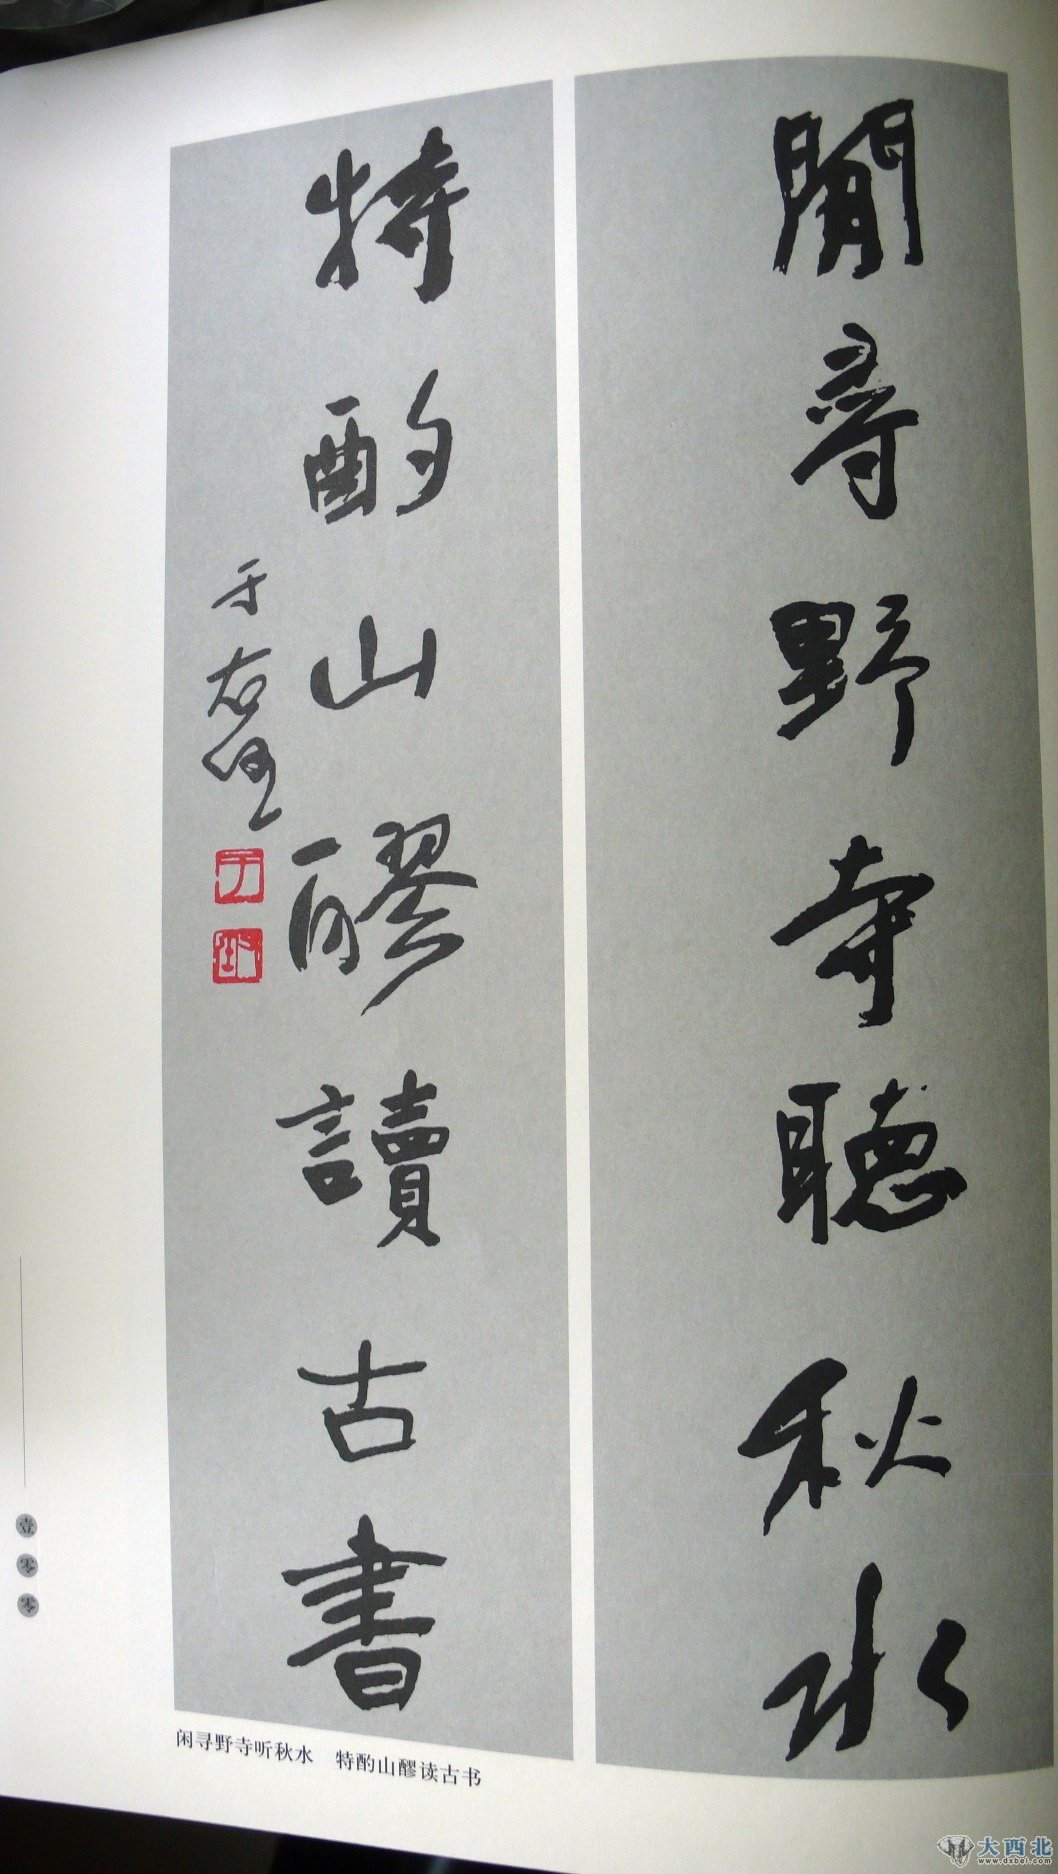 閒尋野寺聽秋水
特酌山醪讀古書
于右任
闲寻野寺听秋水 特酌山醪读古书
壹零零
大西北
www.dxbei.com